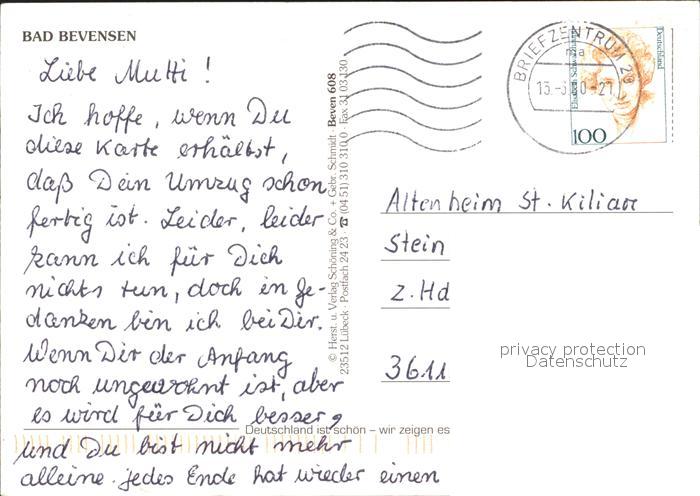 BAD BEVENSEN
Liebe Mutti !
Ich hoffe, wenn Du
diese Karte erhältst,
daß Dein Umzug schon
fertig ist. Leider, leider
kann ich für Dich
nichts tun, doch in Ge-
danken bin ich bei Dir.
Wenn Dir der Anfang
noch ungewohnt ist, aber
es wird für Dich besser,
und Du bist nicht mehr
alleine. jedes Ende hat wieder einen
© Herst. u. Verlag Schöning & Co. + Gebr. Schmidt · Beven 608
23512 Lübeck · Postfach 24 23 · ☎ (04 51) 310 310,0 · Fax 31 03 130
Deutschland ist schön – wir zeigen es
BRIEFZENTRUM 29
ma
Elisabeth Schwarzhaupt
Deutschland
100
Altenheim St. Kilian
Stein
z. Hd
3611
privacy protection
Datenschutz